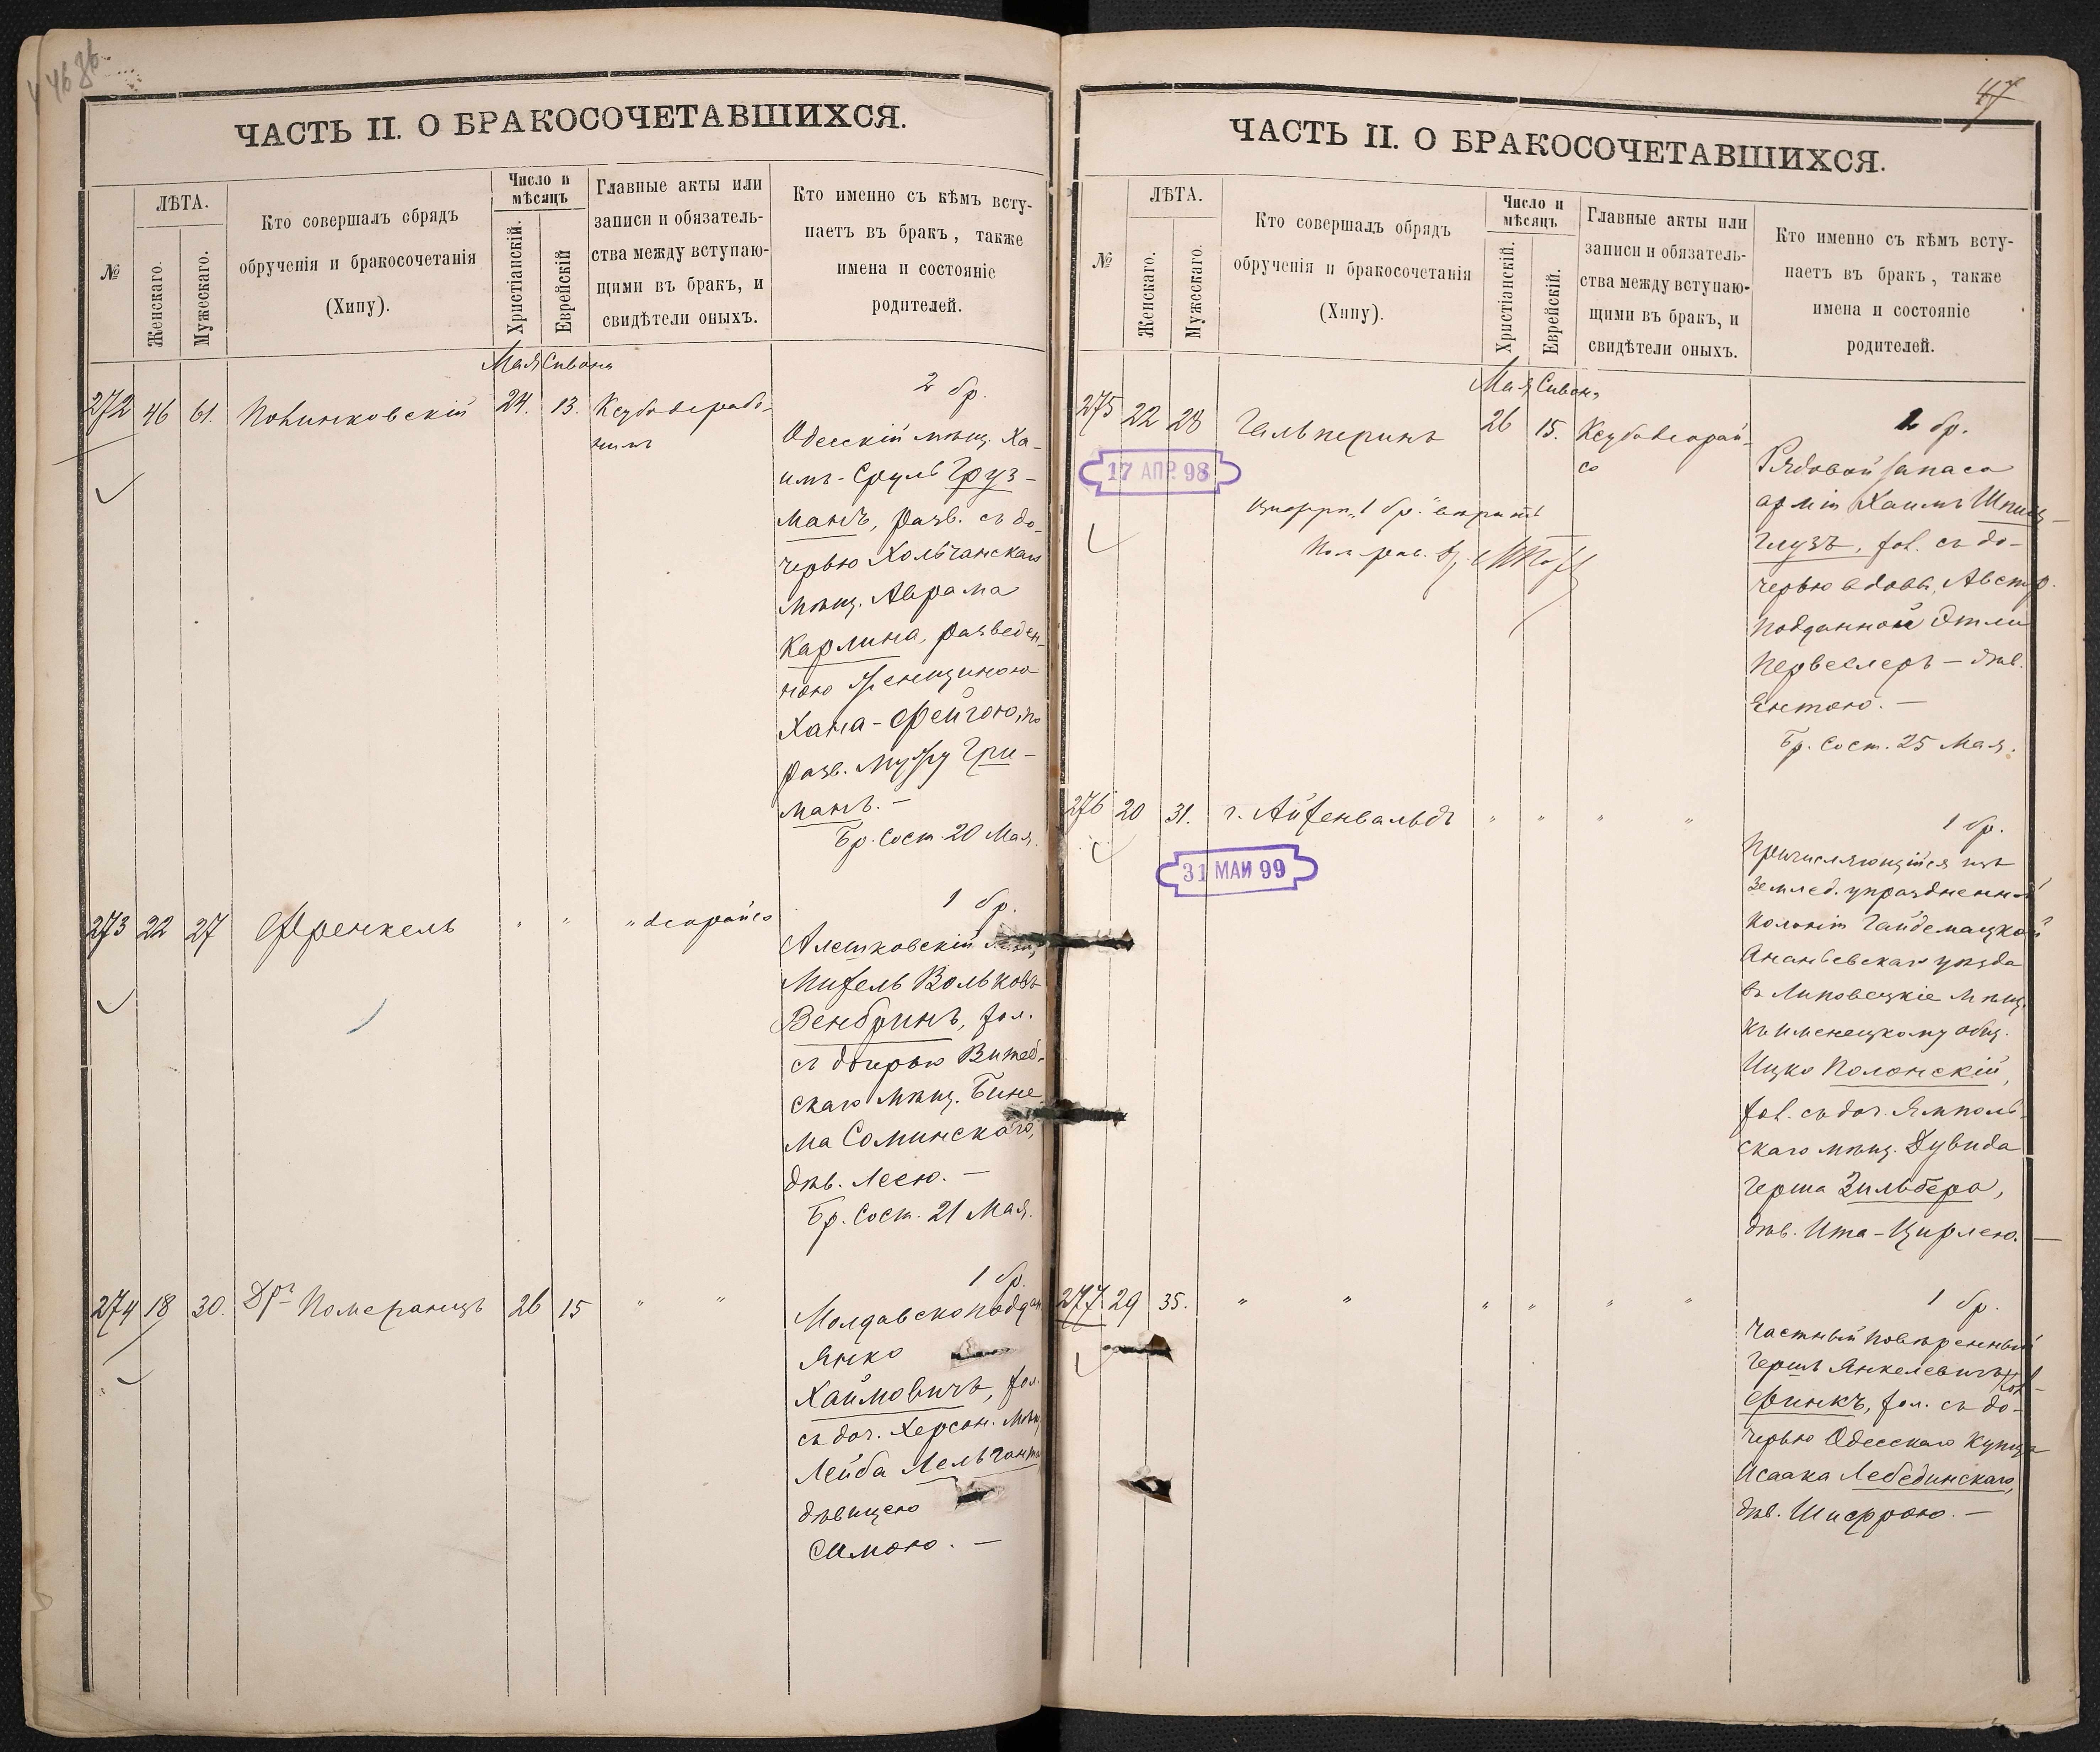 ЧАСТЬ II. О БРАКОСОЧЕТАВШИХСЯ.
№
ЛѢТА.
Женскаго.
Мужескаго.
Кто совершалъ обрядъ
обрученія и бракосочетанія
(Хипу).
Число и
мѣсяцъ
Христіанскій.
Еврейскій
Главные акты или
записи и обязатель-
ства между вступаю-
щими въ бракъ, и
свидѣтели оныхъ.
Кто именно съ кѣмъ всту-
паетъ въ бракъ, также
имена и состояніе
родителей.
Мая Сивана
272 46 61. 24. 13.
2 бр.
Одесскій мѣщ. Ха-
имъ-Сруль Груз-
манъ, разв. съ до-
черью Хольчанскаго
мѣщ. Аврама
Карлина, разведен-
ною женщиною
Хана-Фейгою, по
разв. мужу Гри-
манъ. —
Бр. сост. 20 Мая.
273 22 27 Френкель " " " деорайсо
1 бр.
Алешковскій мѣщ.
Михель Вольковъ
Вендринъ, хол.
съ дочерью Витеб-
скаго мѣщ. Бине-
ма Соминскаго,
дѣв. Леею. —
Бр. сост. 21 Мая.
274 18 30. Дръ Померанцъ 26 15 " "
1 бр.
Молдавскоподдан
Янко
Хаймовичъ, хол.
съ доч. Херсон. мѣщ.
Лейба
дѣвицею
Симою. —
47
ЧАСТЬ II. О БРАКОСОЧЕТАВШИХСЯ.
№
ЛѢТА.
Женскаго.
Мужескаго.
Кто совершалъ обрядъ
обрученія и бракосочетанія
(Хипу).
Число и
мѣсяцъ
Христіанскій.
Еврейскій.
Главные акты или
записи и обязатель-
ства между вступаю-
щими въ бракъ, и
свидѣтели оныхъ.
Кто именно съ кѣмъ всту-
паетъ въ бракъ, также
имена и состояніе
родителей.
Мая Сивана
275 22 28 Гальперинъ 26 15. Ксубо деорай-
со
17 АПР. 98
1 бр.
Рядовой запаса
арміи Хаимъ Шпиц-
глузъ, хол. съ до-
черью вдовы, Австр.
подданной Этли
Первеслеръ — дѣв.
Ентою. —
Бр. сост. 25 Мая.
276 20 31. г. Айзенвальдъ " " " "
31 МАИ 99
1 бр.
Причисляющійся изъ
землед. упраздненной
колоніи Гайдемацкой
Ананьевскаго уѣзда
въ Липовецкіе мѣщ.
Ицко Полонскій,
хол. съ доч. Ямполь-
скаго мѣщ. Дувида
Герша Зильбера,
дѣв. Ита-Цирлею. —
277 29 35. " " " " " "
1 бр.
Частный повѣренный
Гершъ Янкелевичъ
Финкъ, хол. съ до-
черью Одесскаго купца
Исаака Лебединскаго,
дѣв. Шифрою. —